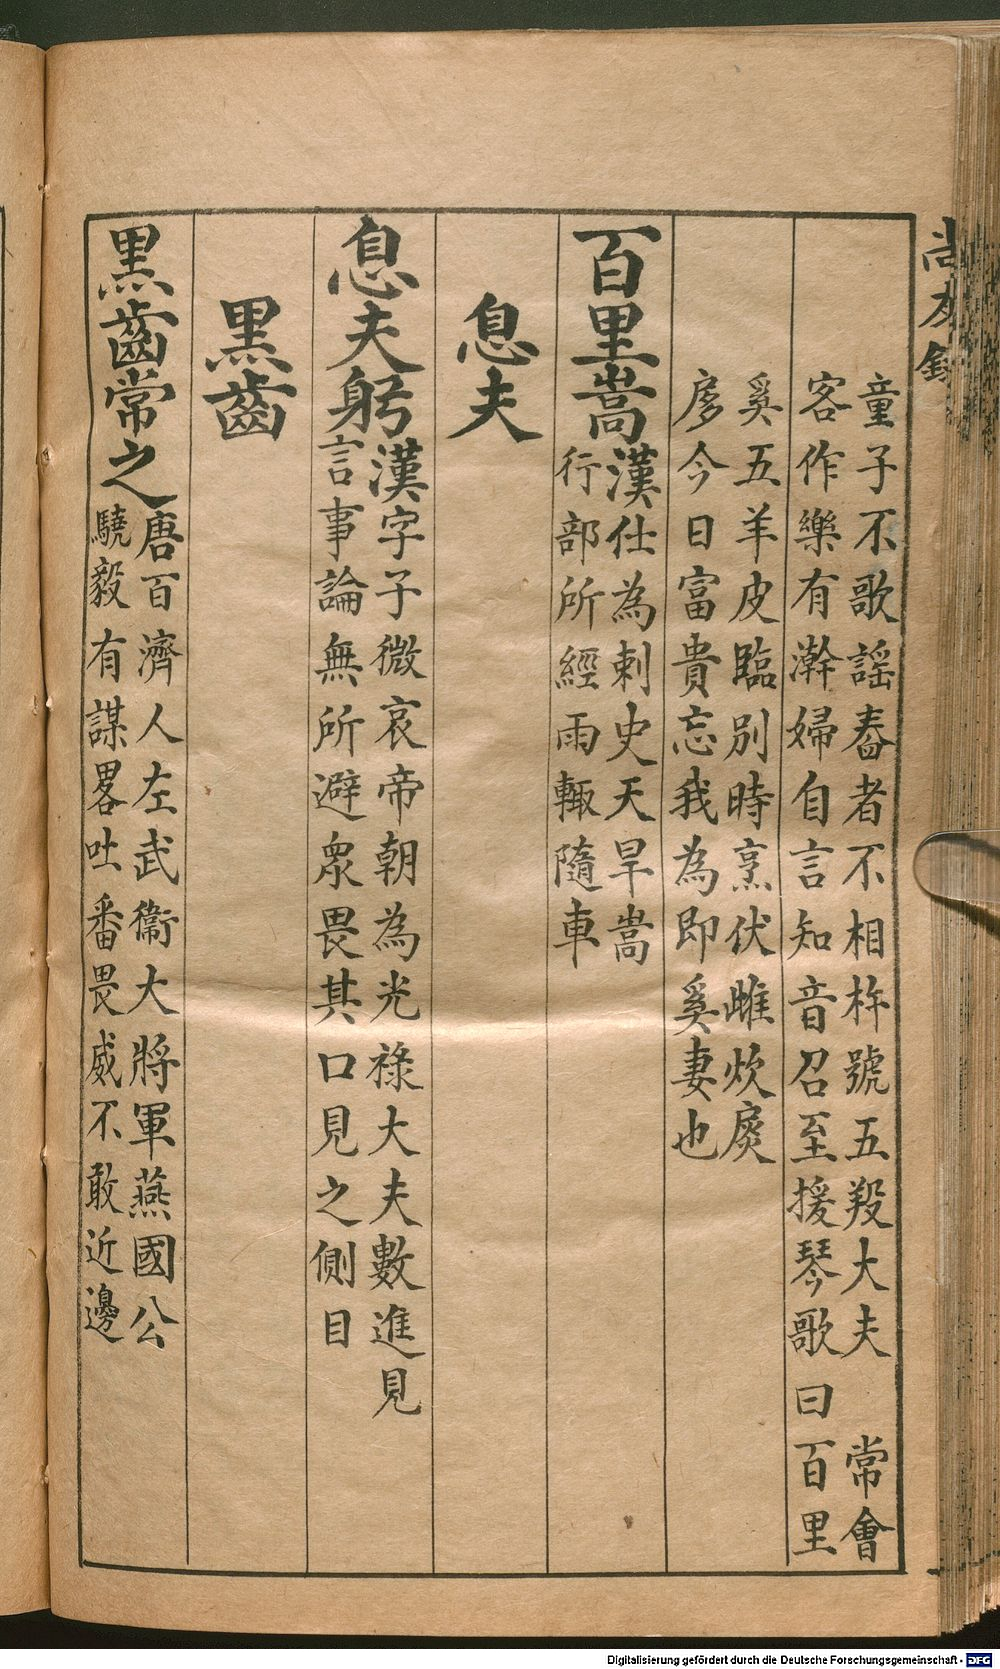 尚友錄
童子不歌謡舂者不相杵號五羖大夫　常會
客作樂有澣婦自言知音召至援琴歌曰百里
奚五羊皮臨別時烹伏雌炊扊
扅今日富貴忘我為即奚妻也
百里嵩
漢仕為刺史天旱嵩
行部所經雨輙隨車
息夫
息夫躬
漢字子微哀帝朝為光祿大夫數進見
言事論無所避衆畏其口見之側目
黒齒
黒齒常之
唐百濟人左武衞大將軍燕國公
驍毅有謀畧吐番畏威不敢近邊
Digitalisierung gefördert durch die Deutsche Forschungsgemeinschaft - DFG